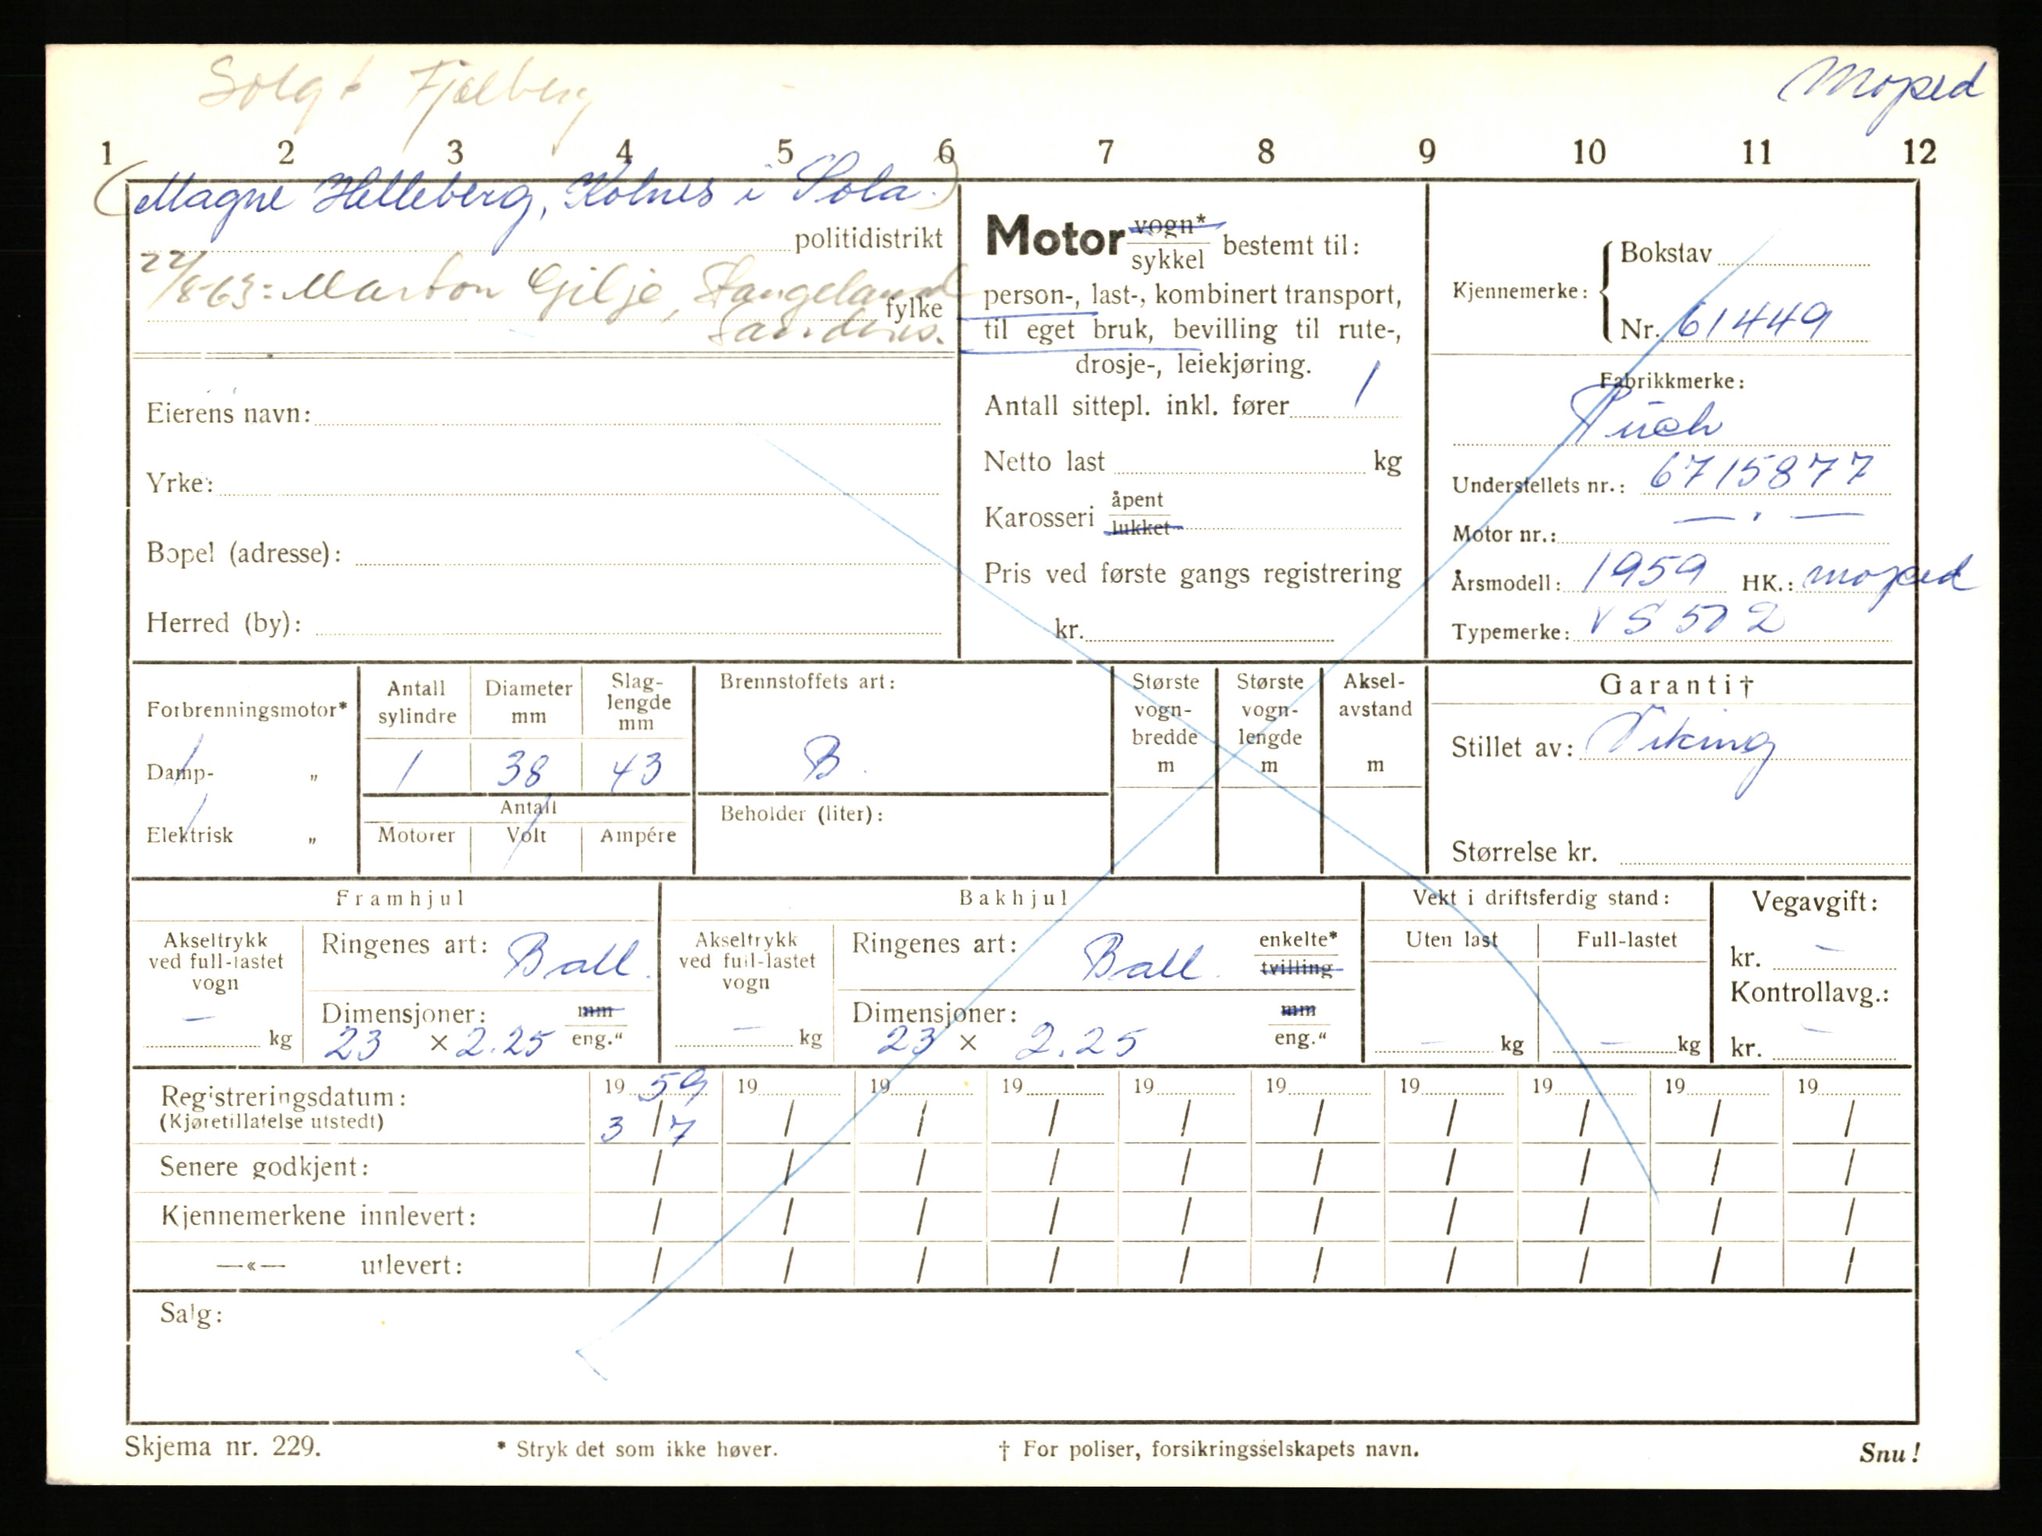 Solgt Fjelberg
Moped
1 2 3 4 5 6 7 8 9 10 11 12
(Magne Helleberg, Kolnes i Sola.)
politidistrikt
22/8-63: Marton Gilje, Stangeland
fylke
Sandnes.
Eierens navn:
Yrke:
Bopel (adresse):
Herred (by):
Motor vogn* / sykkel bestemt til:
person-, last-, kombinert transport,
til eget bruk, bevilling til rute-,
drosje-, leiekjøring.
Antall sittepl. inkl. fører 1
Netto last kg
Karosseri åpent / lukket
Pris ved første gangs registrering
kr.
Kjennemerke: Bokstav
Nr. 61449
Fabrikkmerke:
Puch
Understellets nr.: 6715877
Motor nr.: — " —
Årsmodell: 1959 HK.: moped
Typemerke: VS 50 2
Forbrenningsmotor*
Damp- „
Elektrisk „
Antall sylindre
1
Diameter mm
38
Slag-lengde mm
43
Antall
Motorer Volt Ampére
Brennstoffets art:
B
Beholder (liter):
Største vogn-bredde m
Største vogn-lengde m
Aksel-avstand m
Garanti†
Stillet av: Viking
Størrelse kr.
Framhjul
Akseltrykk ved full-lastet vogn
— kg
Ringenes art: Ball.
Dimensjoner: mm / eng."
23 × 2.25
Bakhjul
Akseltrykk ved full-lastet vogn
— kg
Ringenes art: Ball. enkelte* / tvilling
Dimensjoner: mm / eng."
23 × 2.25
Vekt i driftsferdig stand:
Uten last Full-lastet
— kg — kg
Vegavgift:
kr. —
Kontrollavg.:
kr. —
Registreringsdatum: 19 59 19 19 19 19 19 19 19 19 19
(Kjøretillatelse utstedt) 3 / 7 / / / / / / / / /
Senere godkjent: / / / / / / / / / /
Kjennemerkene innlevert: / / / / / / / / / /
—«— utlevert: / / / / / / / / / /
Salg:
Skjema nr. 229.
* Stryk det som ikke høver.
† For poliser, forsikringsselskapets navn.
Snu!